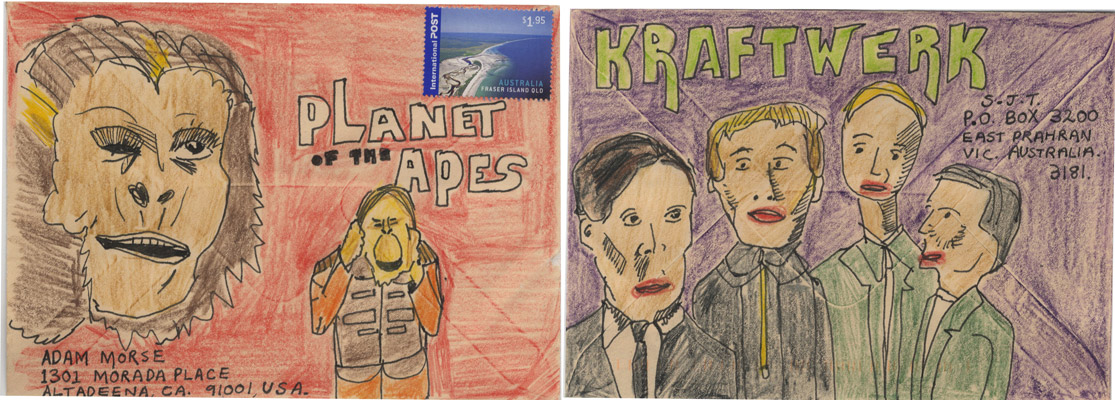 International POST
$1.95
AUSTRALIA
FRASER ISLAND QLD
PLANET
OF THE
APES
ADAM MORSE
1301 MORADA PLACE
ALTADEENA, CA. 91001, USA.
KRAFTWERK
S.J.T.
P.O. BOX 3200
EAST PRAHRAN
VIC. AUSTRALIA.
3181.